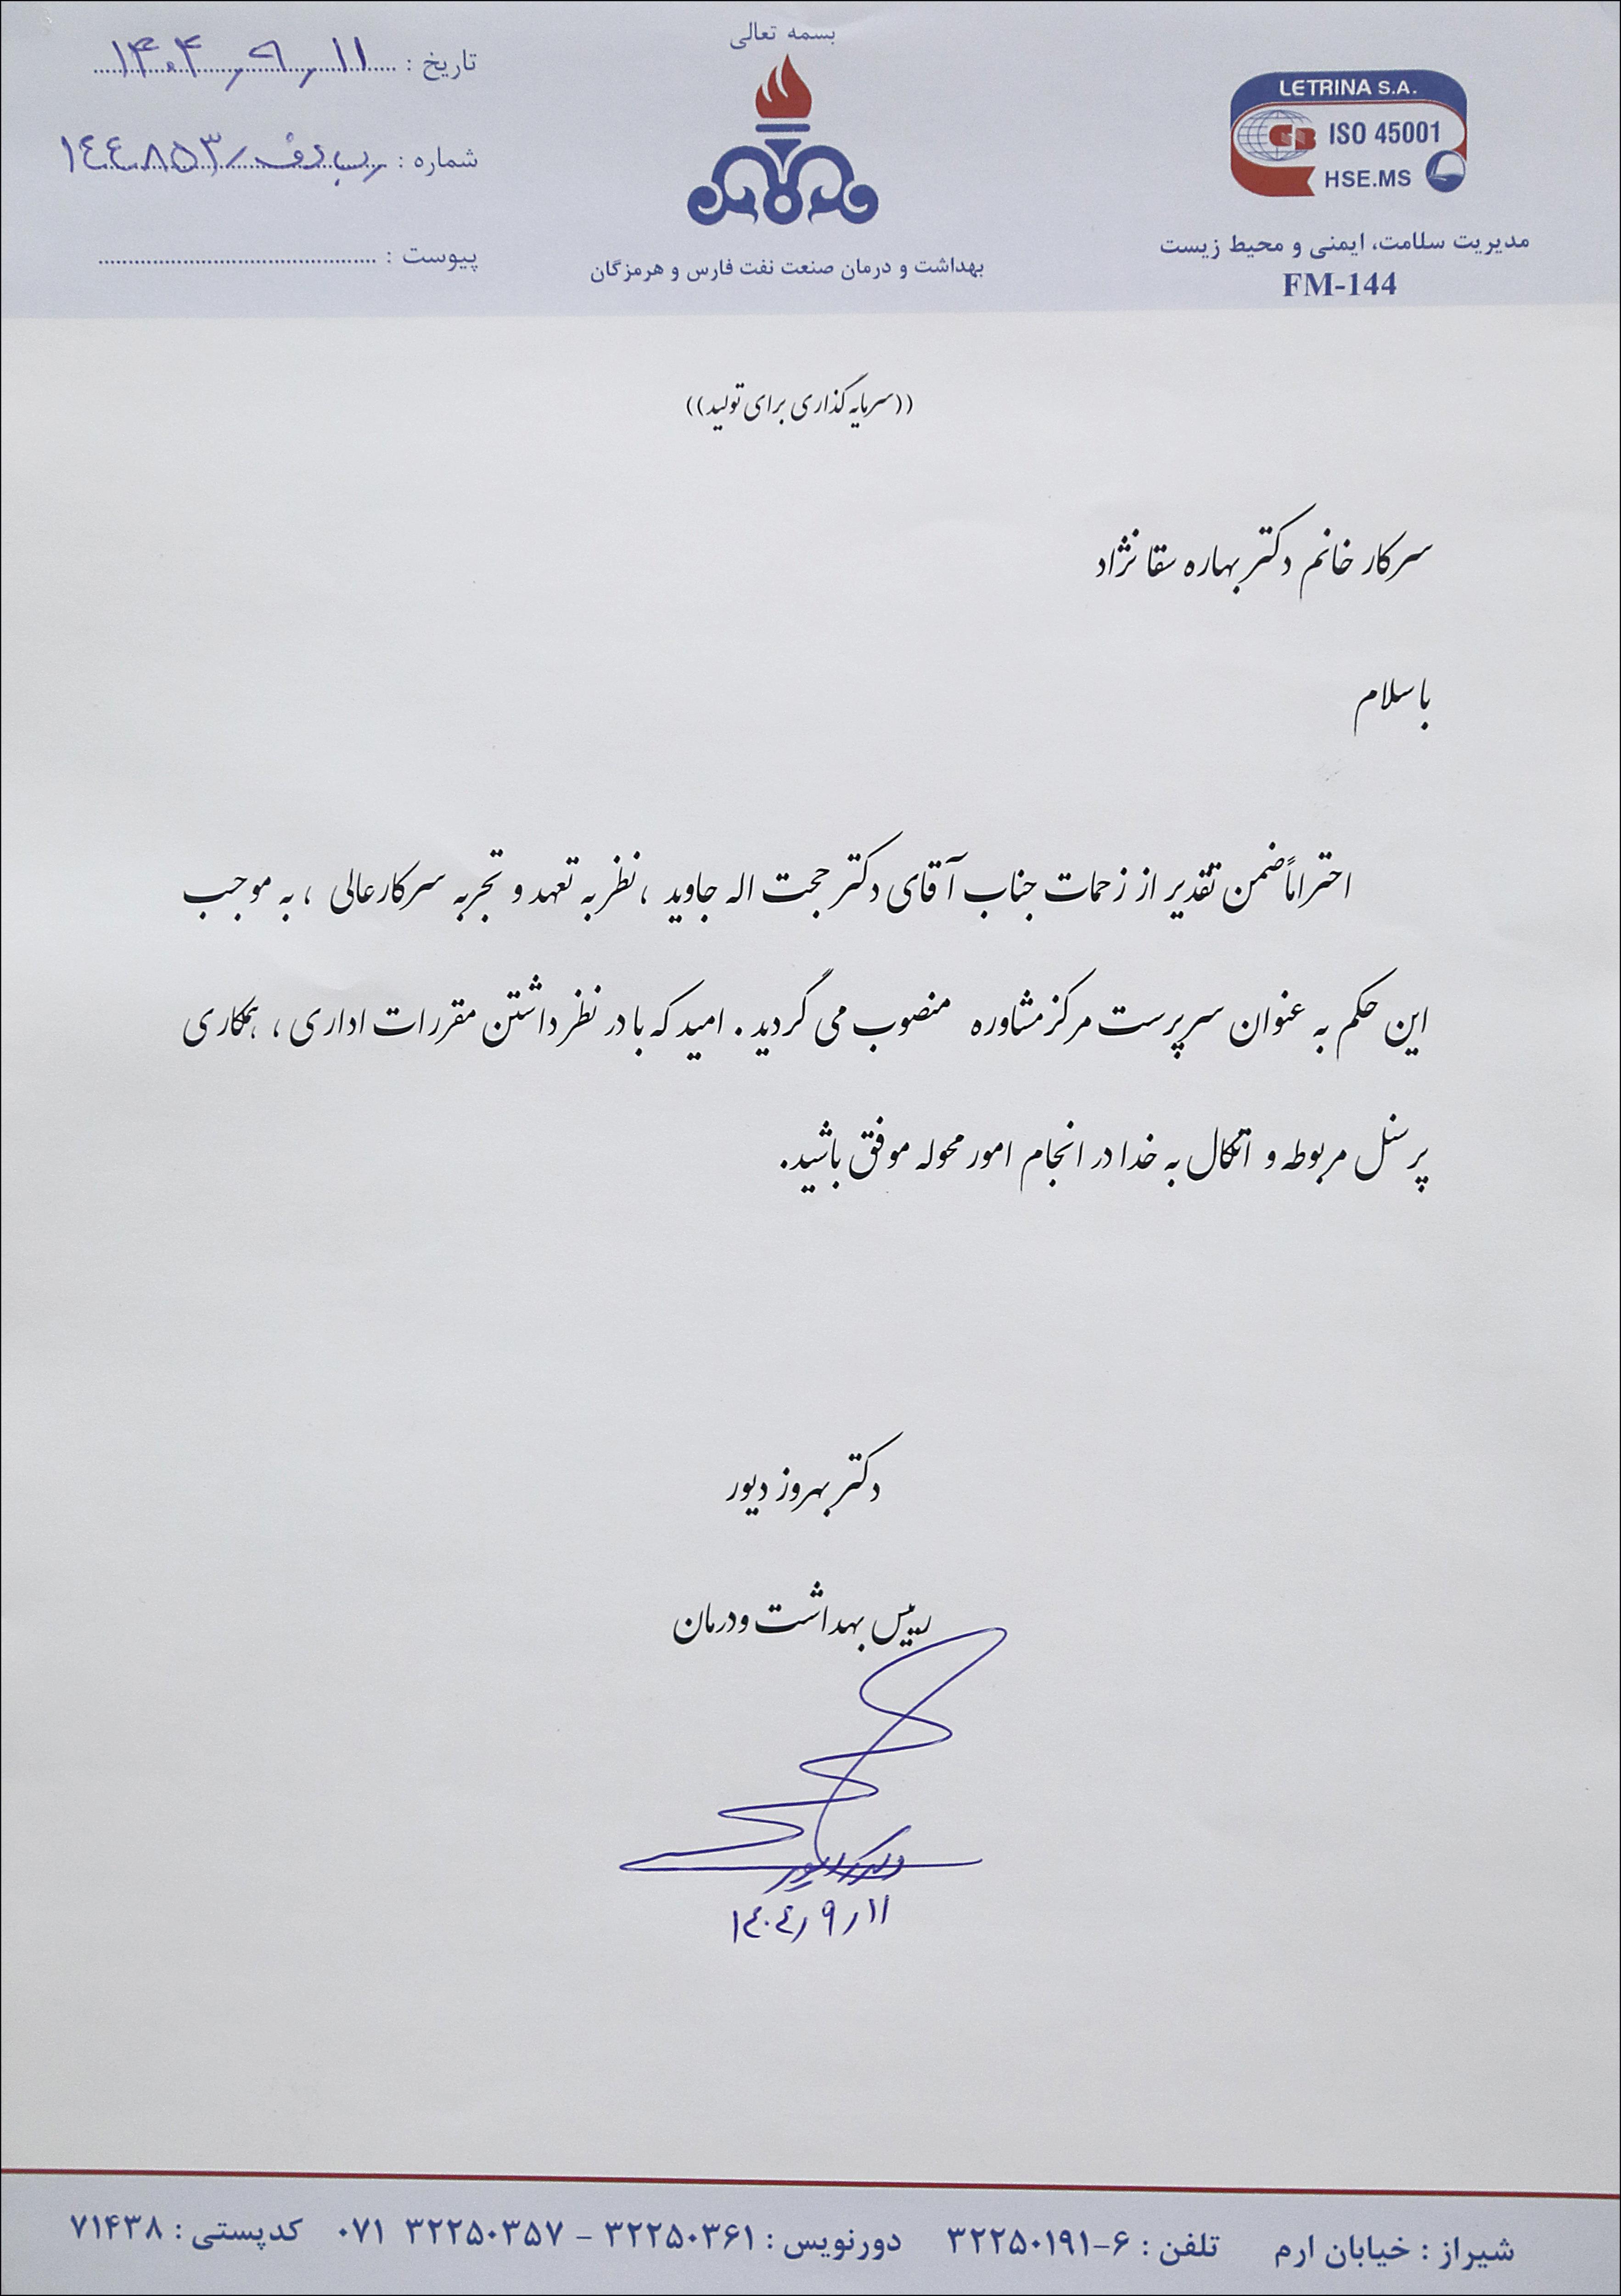 بسمه تعالی
LETRINA S.A.
GB ISO 45001
HSE.MS
مدیریت سلامت، ایمنی و محیط زیست
FM-144
بهداشت و درمان صنعت نفت فارس و هرمزگان
تاریخ : ۱۴۰۴٫۹٫۱۱
شماره : ۱۴۴۸۵۳
پیوست :
((سرمایه گذاری برای تولید))
سرکار خانم دکتر بهاره سقا نژاد
با سلام
احتراماً ضمن تقدیر از زحمات جناب آقای دکتر حجت اله جاوید ، نظر به تعهد و تجربه سرکارعالی ، به موجب
این حکم به عنوان سرپرست مرکز مشاوره منصوب می گردید . امید که با در نظر داشتن مقررات اداری ، همکاری
پرسنل مربوطه و اتکال به خدا در انجام امور محوله موفق باشید.
دکتر بهروز دیور
رییس بهداشت و درمان
۱۴۰۴٫۹٫۱۱
شیراز : خیابان ارم تلفن : ۶-۳۲۲۵۰۱۹۱ دورنویس : ۳۲۲۵۰۳۶۱ - ۳۲۲۵۰۳۵۷ ۰۷۱ کدپستی : ۷۱۴۳۸